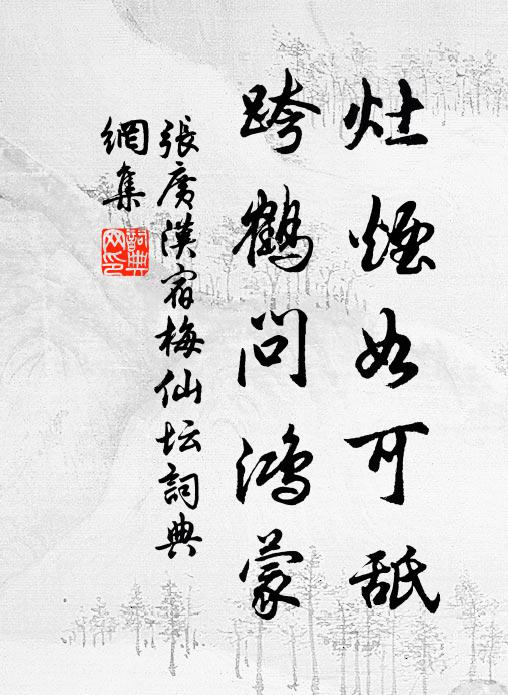 灶煙如可舐
跨鶴問鴻蒙
張廣漢宿梅仙坛詞典
網集
詞典
网印